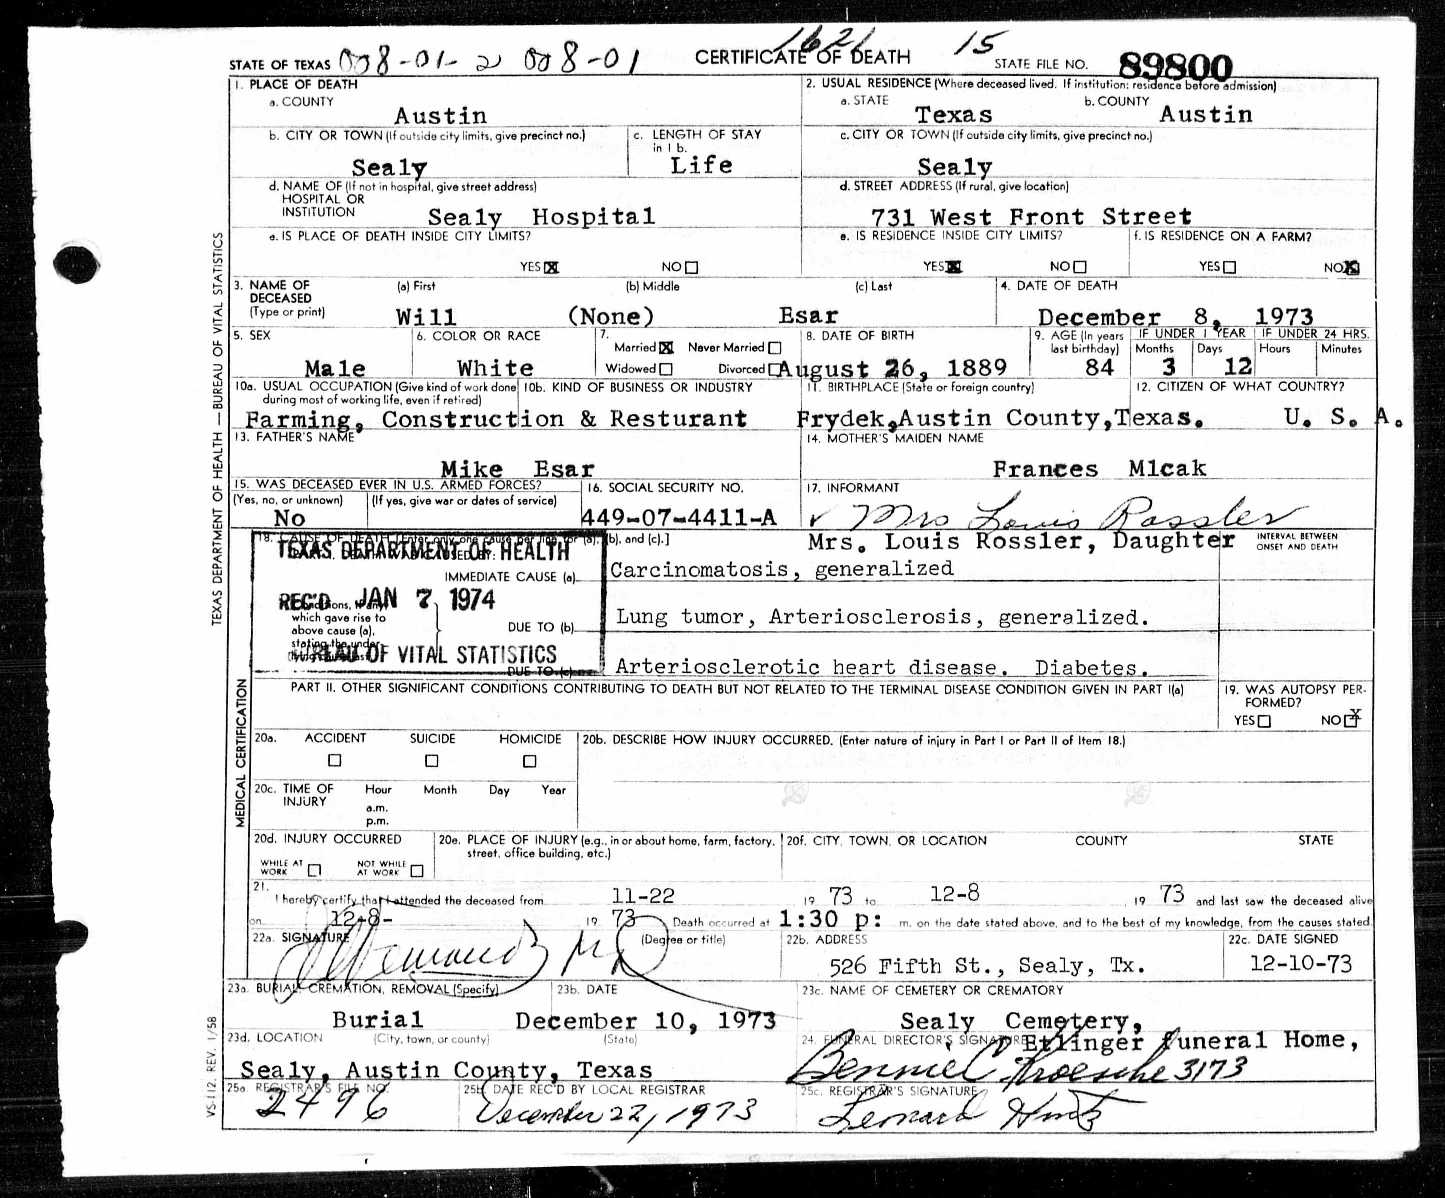 STATE OF TEXAS 008-01-2 008-01 CERTIFICATE OF DEATH 1621 15 STATE FILE NO. 89800
1. PLACE OF DEATH
a. COUNTY
Austin
2. USUAL RESIDENCE (Where deceased lived. If institution: residence before admission)
a. STATE
Texas
b. COUNTY
Austin
b. CITY OR TOWN (If outside city limits, give precinct no.)
Sealy
c. LENGTH OF STAY
in 1 b.
Life
c. CITY OR TOWN (If outside city limits, give precinct no.)
Sealy
d. NAME OF (If not in hospital, give street address)
HOSPITAL OR
INSTITUTION
Sealy Hospital
d. STREET ADDRESS (If rural, give location)
731 West Front Street
e. IS PLACE OF DEATH INSIDE CITY LIMITS?
YES X NO
e. IS RESIDENCE INSIDE CITY LIMITS?
YES X NO
f. IS RESIDENCE ON A FARM?
YES NO X
3. NAME OF
DECEASED
(Type or print)
(a) First
Will
(b) Middle
(None)
(c) Last
Esar
4. DATE OF DEATH
December 8, 1973
5. SEX
Male
6. COLOR OR RACE
White
7.
Married X Never Married
Widowed Divorced
8. DATE OF BIRTH
August 26, 1889
9. AGE (In years
last birthday)
84
IF UNDER 1 YEAR
Months
3
Days
12
IF UNDER 24 HRS.
Hours
Minutes
10a. USUAL OCCUPATION (Give kind of work done
during most of working life, even if retired)
10b. KIND OF BUSINESS OR INDUSTRY
Farming, Construction & Resturant
11. BIRTHPLACE (State or foreign country)
Frydek,Austin County,Texas.
12. CITIZEN OF WHAT COUNTRY?
U. S. A.
13. FATHER'S NAME
Mike Esar
14. MOTHER'S MAIDEN NAME
Frances Mlcak
15. WAS DECEASED EVER IN U.S. ARMED FORCES?
(Yes, no, or unknown)
No
(If yes, give war or dates of service)
16. SOCIAL SECURITY NO.
449-07-4411-A
17. INFORMANT
Mrs Louis Rossler
Mrs. Louis Rossler, Daughter
INTERVAL BETWEEN
ONSET AND DEATH
18. CAUSE OF DEATH [Enter only one cause per line for (a), (b), and (c).]
TEXAS DEPARTMENT OF HEALTH
REC'D JAN 7 1974
BUREAU OF VITAL STATISTICS
IMMEDIATE CAUSE (a)
Carcinomatosis, generalized
Conditions, if any,
which gave rise to
above cause (a),
stating the under-
lying cause last
DUE TO (b)
Lung tumor, Arteriosclerosis, generalized.
DUE TO (c)
Arteriosclerotic heart disease. Diabetes.
PART II. OTHER SIGNIFICANT CONDITIONS CONTRIBUTING TO DEATH BUT NOT RELATED TO THE TERMINAL DISEASE CONDITION GIVEN IN PART I(a)
19. WAS AUTOPSY PER-
FORMED?
YES NO X
20a. ACCIDENT SUICIDE HOMICIDE
20b. DESCRIBE HOW INJURY OCCURRED. (Enter nature of injury in Part I or Part II of Item 18.)
20c. TIME OF
INJURY
Hour Month Day Year
a.m.
p.m.
20d. INJURY OCCURRED
WHILE AT
WORK
NOT WHILE
AT WORK
20e. PLACE OF INJURY (e.g., in or about home, farm, factory,
street, office building, etc.)
20f. CITY, TOWN, OR LOCATION COUNTY STATE
21.
I hereby certify that I attended the deceased from 11-22 19 73 to 12-8 19 73 and last saw the deceased alive
on 12-8- 19 73 Death occurred at 1:30 p: m. on the date stated above, and to the best of my knowledge, from the causes stated.
22a. SIGNATURE
(Degree or title)
MD
22b. ADDRESS
526 Fifth St., Sealy, Tx.
22c. DATE SIGNED
12-10-73
23a. BURIAL, CREMATION, REMOVAL (Specify)
Burial
23b. DATE
December 10, 1973
23c. NAME OF CEMETERY OR CREMATORY
Sealy Cemetery,
23d. LOCATION (City, town, or county) (State)
Sealy, Austin County, Texas
24. FUNERAL DIRECTOR'S SIGNATURE
Etlinger Funeral Home,
Bennie C. Kroesche 3173
25a. REGISTRAR'S FILE NO.
2496
25b. DATE REC'D BY LOCAL REGISTRAR
December 22, 1973
25c. REGISTRAR'S SIGNATURE
Leonard Hintz
TEXAS DEPARTMENT OF HEALTH — BUREAU OF VITAL STATISTICS
MEDICAL CERTIFICATION
VS-112, REV. 1/58